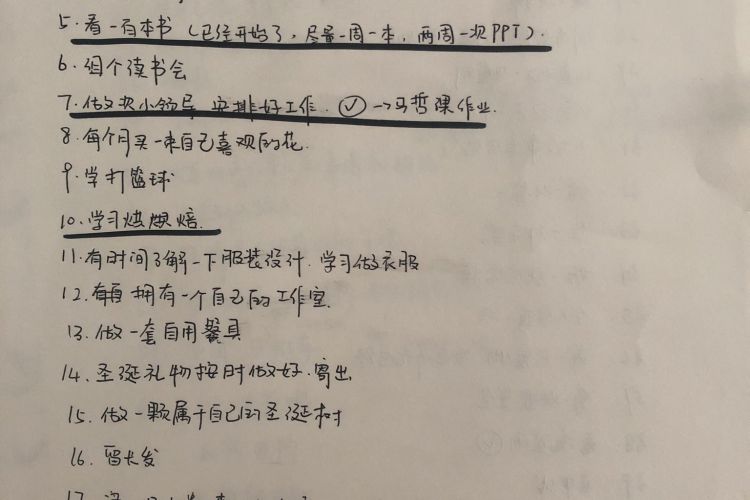 5.看一百本书(已经开始了,尽量一周一本,两周一次PPT).
6.组个读书会
7.做次小领导,安排好工作. ✓→马哲课作业.
8.每个月买一束自己喜欢的花.
9.学打篮球
10.学习烘焙.
11.有时间了解一下服装设计.学习做衣服
12.拥有一个自己的工作室.
13.做一套自用餐具
14.圣诞礼物按时做好.寄出
15.做一颗属于自己的圣诞树
16.留长发
17.